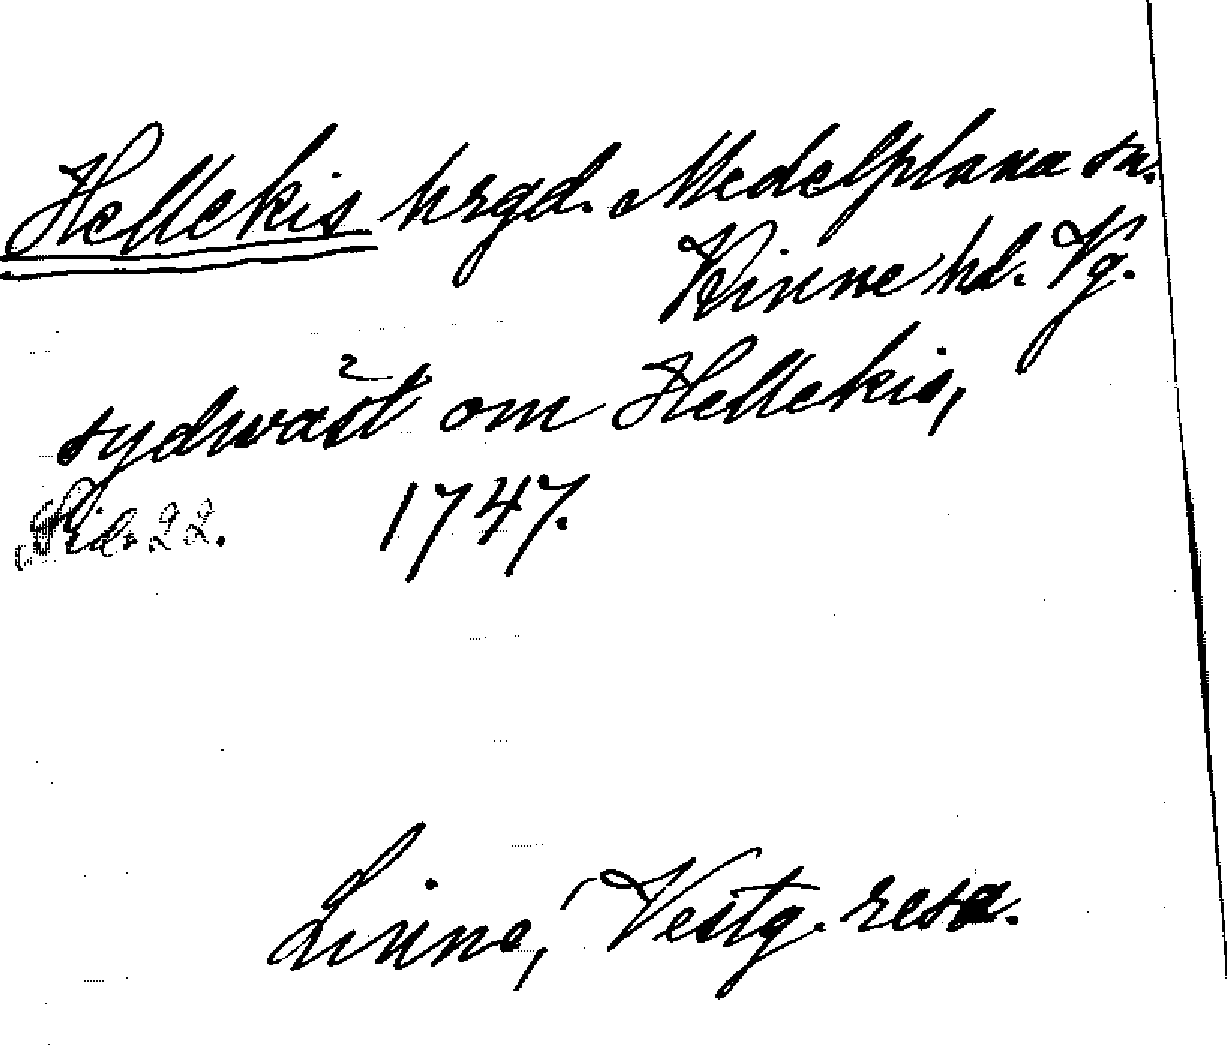 Hellekis hrgd. Medelplana sn.
Kinne hd. Vg.
sydwäst om Hellekis,
Sid. 22. 1747.
Linne, Vestg. resa.